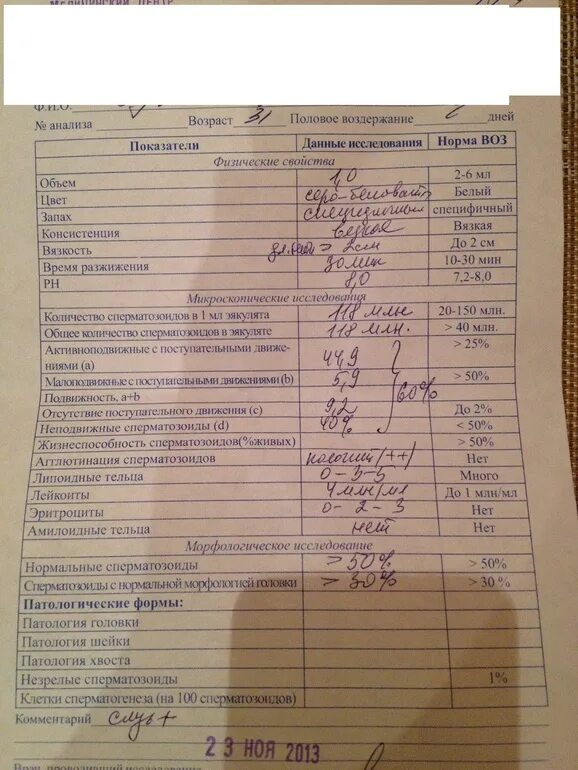 МЕДИЦИНСКИЙ ЦЕНТР
Ф.И.О.
№ анализа Возраст 31 Половое воздержание дней
Показатели Данные исследования Норма ВОЗ
Физические свойства
Объем 1,0 2-6 мл
Цвет серо-беловат Белый
Запах специфичный специфичный
Консистенция вязкая Вязкая
Вязкость дл. нити > 2см До 2 см
Время разжижения 30 мин 10-30 мин
РН 8,0 7,2-8,0
Микроскопические исследования
Количество сперматозоидов в 1 мл эякулята 118 млн 20-150 млн.
Общее количество сперматозоидов в эякуляте 118 млн. > 40 млн.
Активноподвижные с поступательными движе-
ниями (a) 44,9 > 25%
Малоподвижные с поступательными движениями (b) 5,9 > 50%
Подвижность, a+b 60%
Отсутствие поступательного движения (c) 9,2 До 2%
Неподвижные сперматозоиды (d) 40% < 50%
Жизнеспособность сперматозоидов(%живых) > 50%
Агглютинация сперматозоидов (++) Нет
Липоидные тельца 0-3-5 Много
Лейкоиты 4 млн/мл До 1 млн/мл
Эритроциты 0-2-3 Нет
Амилоидные тельца нет Нет
Морфологическое исследование
Нормальные сперматозоиды > 50% > 50%
Сперматозоиды с нормальной морфологией головки > 30% > 30 %
Патологические формы:
Патология головки
Патология шейки
Патология хвоста
Незрелые сперматозоиды 1%
Клетки сперматогенеза (на 100 сперматозоидов)
Комментарий слизь +
23 НОЯ 2013
Врач, проводивший исследование